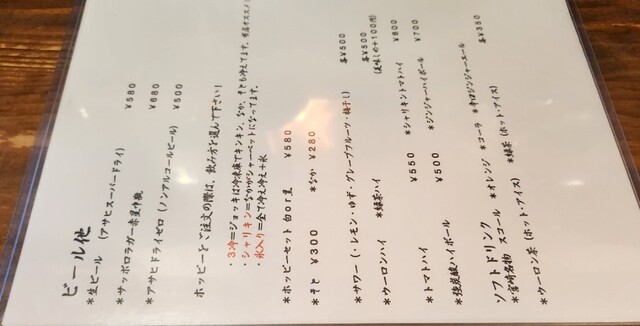 ビール他
*生ビール (アサヒスーパードライ) ¥580
*サッポロラガー赤星中瓶 ¥680
*アサヒドライゼロ (ノンアルコールビール) ¥500
ホッピーをご注文の際は、飲み方を選んで下さい!
・3冷=ジョッキは冷凍庫でキンキン。なか、そとも冷えてます。
・シャリキン=なかがシャーベットになってます。
・氷入り=全て冷え冷え+氷
*ホッピーセット 白or黒 ¥580
*そと ¥300 *なか ¥280
*サワー (・レモン・ゆず・グレープフルーツ・梅干し) 各¥500
*ウーロンハイ *緑茶ハイ 各¥500
(濃いめ+100円)
*トマトハイ ¥550 *シャリキントマトハイ ¥600
*強炭酸ハイボール ¥500 *ジンジャーハイボール ¥700
ソフトドリンク 各¥350
*宮崎名物 スコール *オレンジ *コーラ *辛口ジンジャーエール
*ウーロン茶 (ホット・アイス) *緑茶 (ホット・アイス)